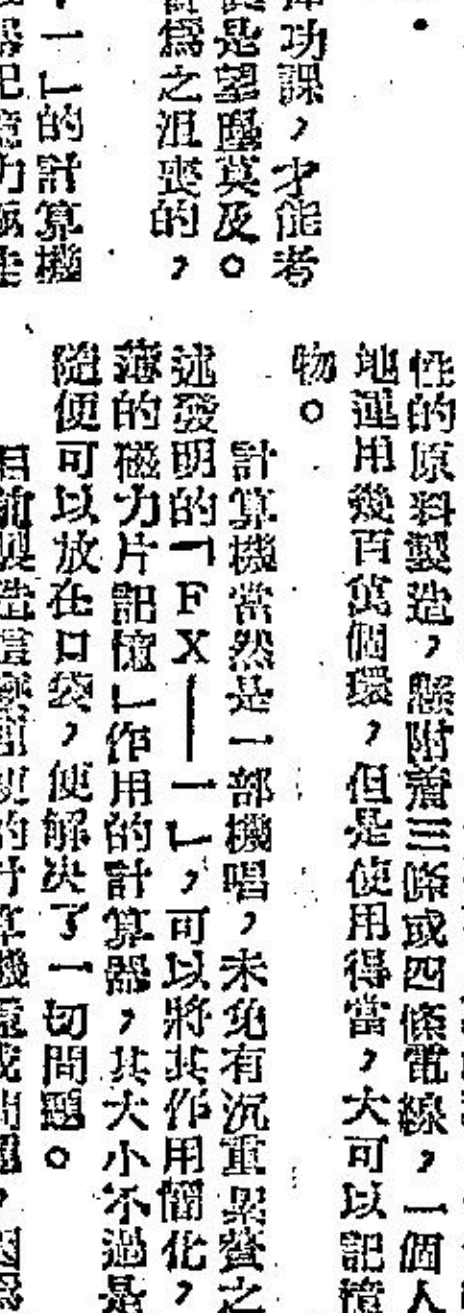 功課，才能考
是望塵莫及。
爲之沮喪的，
一」的計算機
性的原料製造，懸附着三條或四條電線，一個人
地運用幾百萬個環，但是使用得當，大可以記憶
物。
計算機當然是一部機唱，未免有沉重累贅之
述發明的「FX—一」，可以將其作用簡化，
薄的磁力片記憶」作用的計算器，其大小不過是
隨便可以放在口袋，便解决了一切問題。
的計算機